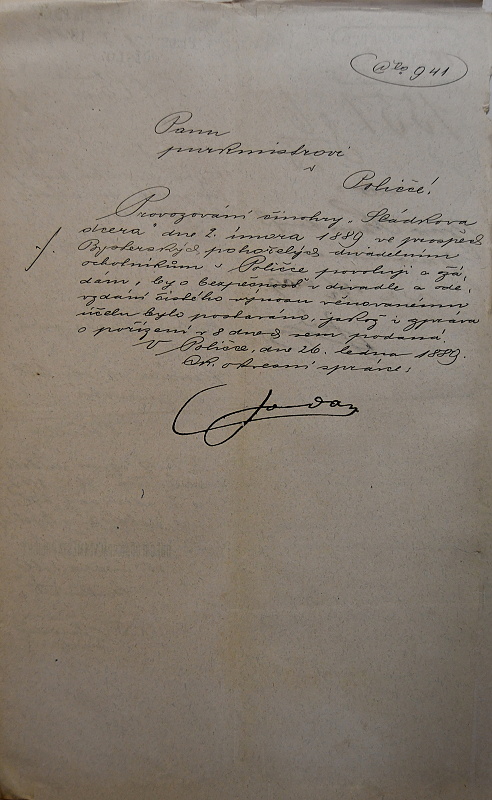 941
Panu
purkmistrovi
v
Poličce!
Provozování činohry „Sládkova
dcera" dne 2. února 1889 ve prospěch
Bysterských pohořelých divadelním
ochotníkům v Poličce povoluji a žá-
dám, by o bezpečnosť v divadle a ode-
vzdání čistého výnosu věnovanému
účelu bylo postaráno, jakož i zpráva
o pořízení v 8 dnech sem podána.
V Poličce, dne 26. ledna 1889.
C. k. okresní správce: